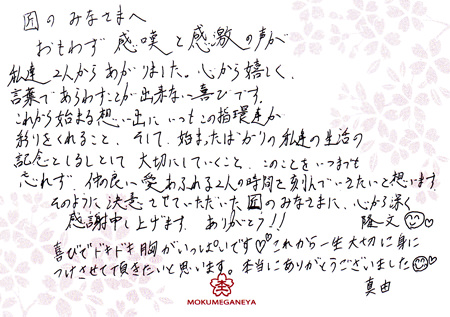 匠の みなさまへ
おもわず 感嘆と感激の声が
私達 2人からあがりました。心から嬉しく、
言葉であらわすことが出来ない喜びです。
これから始まる想い出に いつもこの指環達が
彩りをくれること、そして、始まったばかりの私達の生活の
記念としるしとして 大切にしていくこと、このことをいつまでも
忘れず、仲の良い愛あふれる2人の時間を刻んでいきたいと想います。
そのように 決意させていただいた 匠のみなさまに、心から深く
感謝申し上げます。ありがとう!! 隆文
喜びでドキドキ胸がいっぱいです♡♡これから一生大切に身に
つけさせて頂きたいと思います。本当にありがとうございました
真由
MOKUMEGANEYA